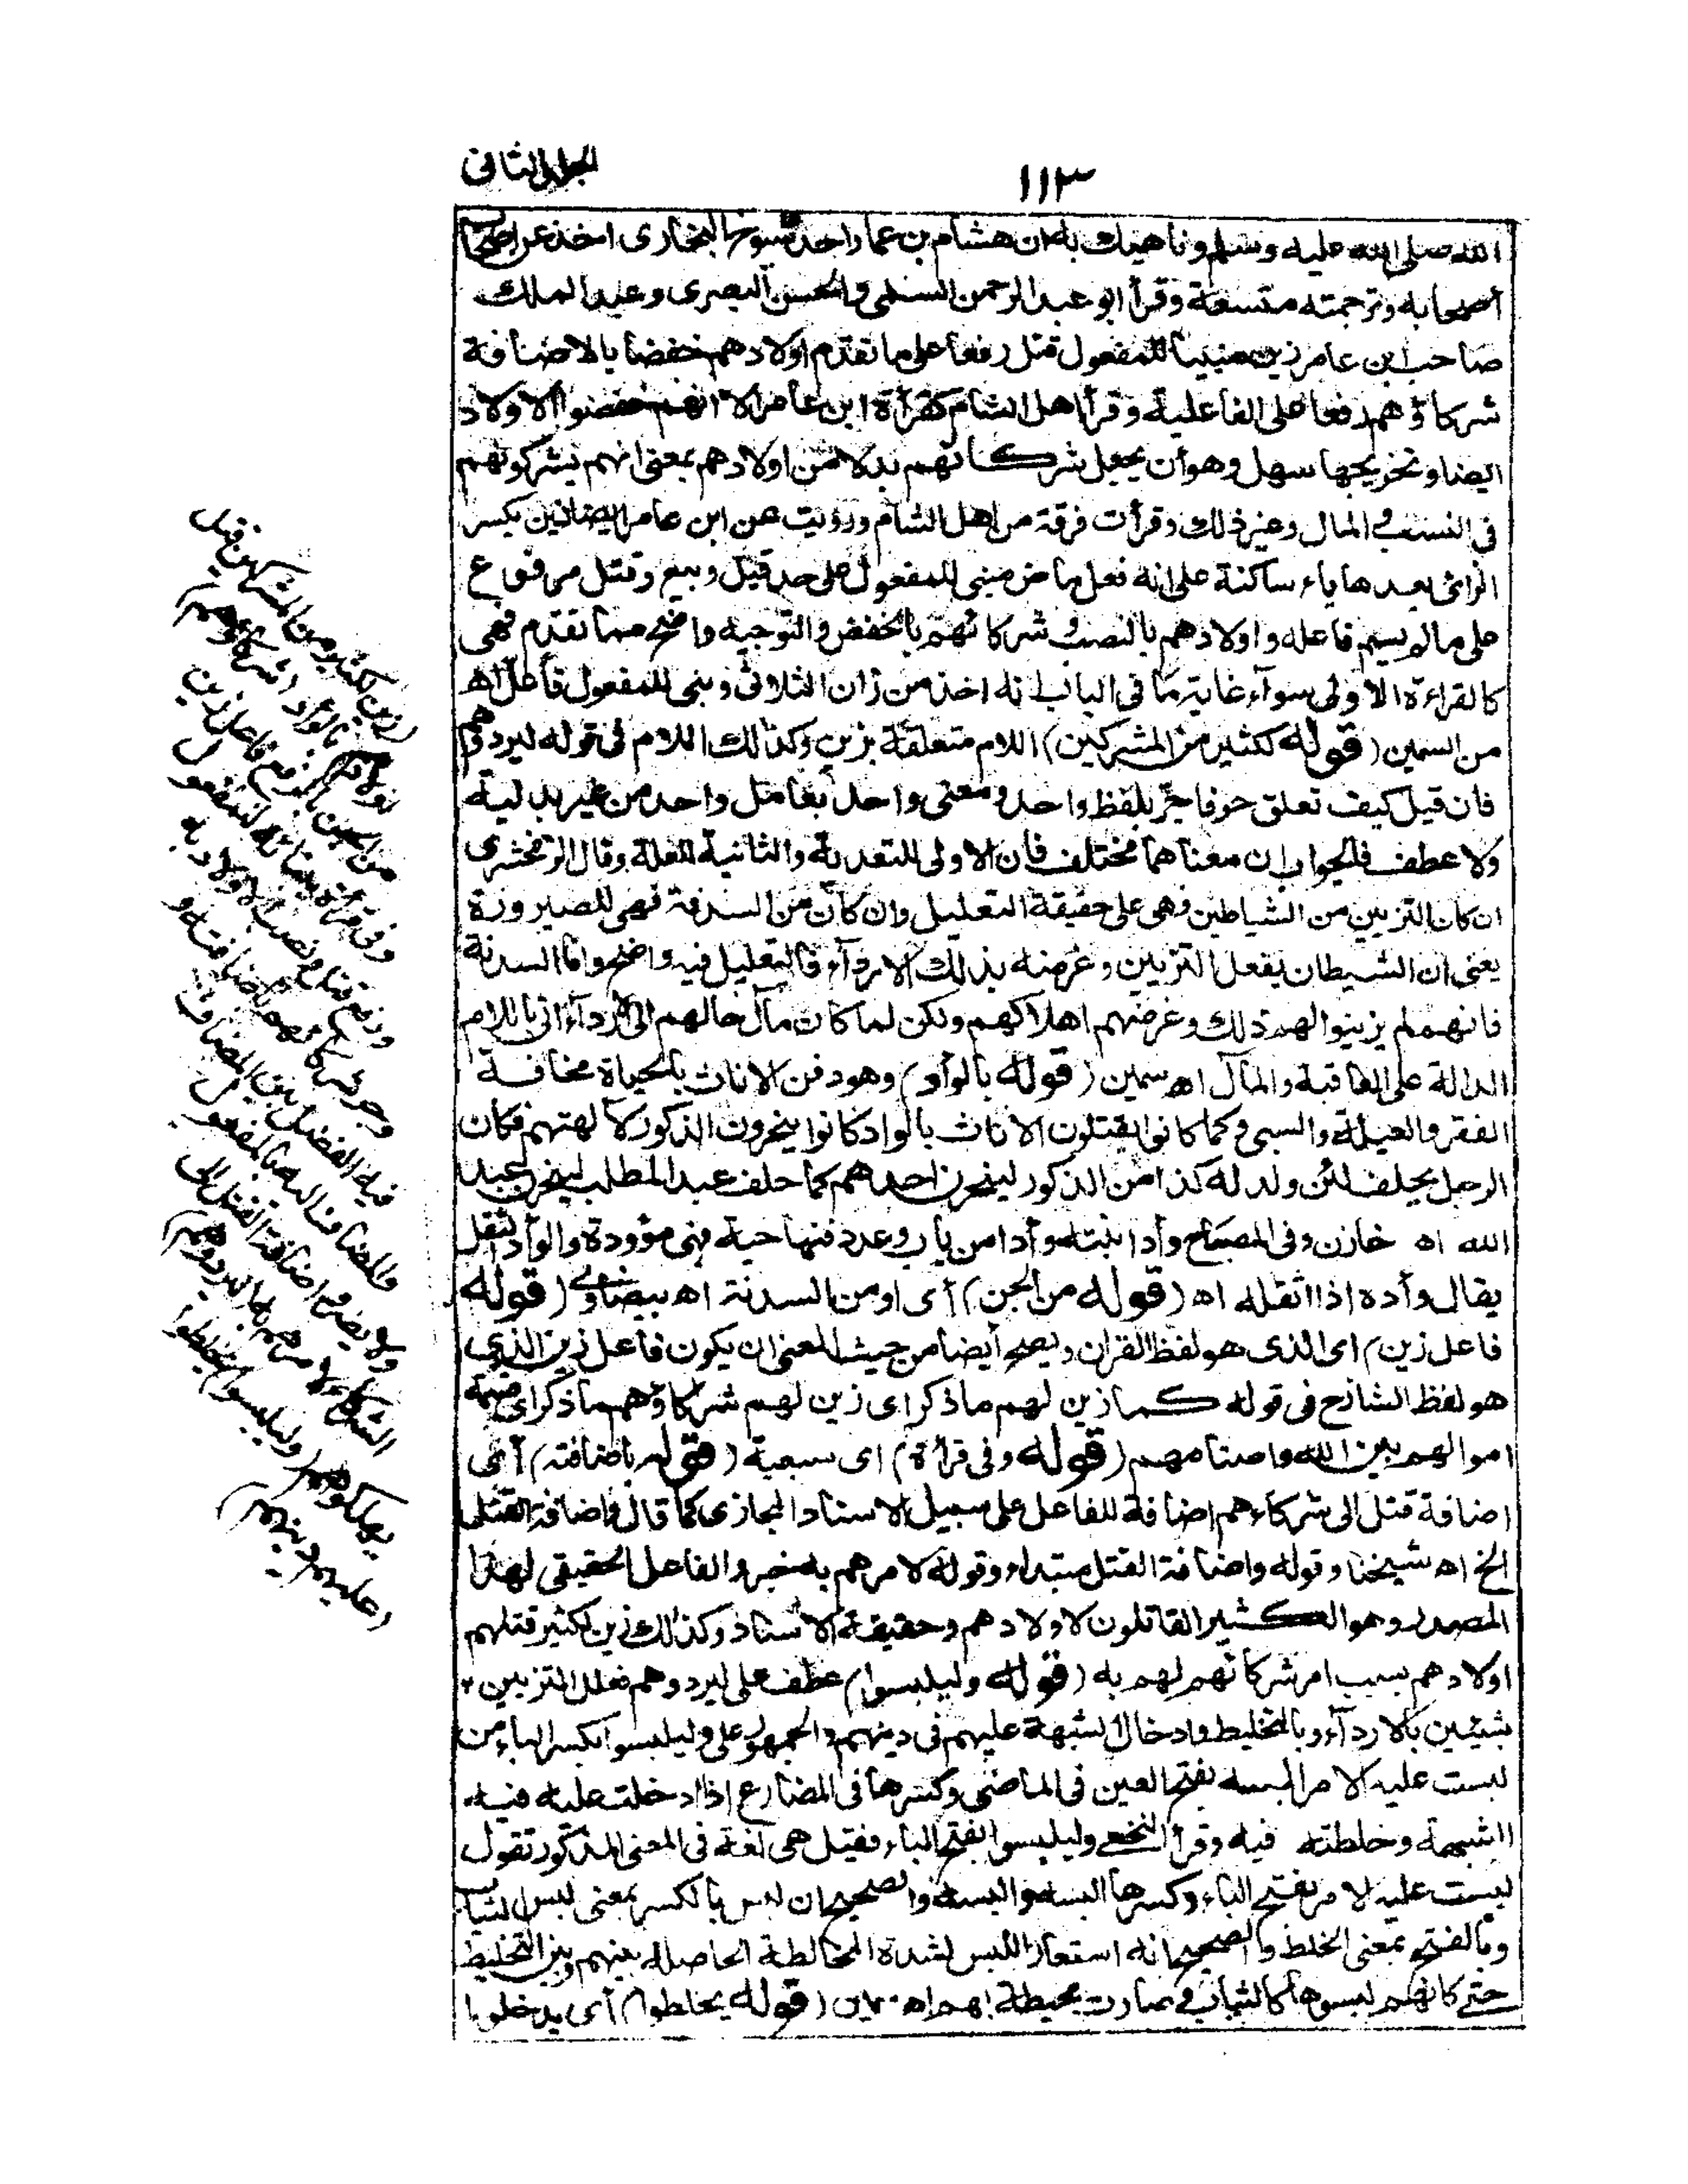 الجلد الثانى
١١٣
الله صلى الله عليه وسلم وناهيك به ان هشام بن عمار احد شيوخ البخارى اخذ عن اصحاب
أصحابه وترجمته متسعة وقرأ ابو عبد الرحمن السلمى والحسن البصرى وعبد الملك
صاحب ابن عامر زين مبنيا للمفعول قتل رفعا على ما تقدم اولادهم خفضا بالاضافة
شركاؤهم رفعا على الفاعلية وقرأ اهل الشام كقراءة ابن عامر الا انهم خفضوا الاولاد
ايضا وتخريجها سهل وهو أن يجعل شركائهم بدلا من اولادهم بمعنى انهم يشركونهم
فى النسب فى المال وغير ذلك وقرأت فرقة من اهل الشام ورويت عن ابن عامر ايضا زين بكسر
الزائى بعدها ياء ساكنة على انه فعل ماض مبنى للمفعول على حد قيل وبيع وقتل مرفوع
على مالم يسم فاعله واولادهم بالنصب وشركائهم بالخفض والتوجيه واضح مما تقدم فهى
كالقراءة الاولى سواء غاية ما فى الباب انه اخذ من زان الثلاثى وبنى للمفعول فأعل اه
من السمين (قوله لكثير من المشركين) اللام متعلقة بزين وكذلك اللام فى قوله ليردوهم
فان قيل كيف تعلق حرفا جر بلفظ واحد ومعنى واحد بعامل واحد من غير بدلية
ولا عطف فالجواب ان معناهما مختلف فان الاولى للتعدية والثانية للعلة وقال الزمخشرى
ان كان التزيين من الشياطين فهى على حقيقة التعليل وان كان من السدنة فهى للصيرورة
يعنى ان الشيطان يفعل التزيين وغرضه بذلك الارداء فالتعليل فيه واضح واما السدنة
فانهم لم يزينوا لهم ذلك وغرضهم اهلاكهم ولكن لما كان مآل حالهم الى الارداء اتى باللام
الدالة على العاقبة والمآل اه سمين (قوله بالوأد) وهو دفن الاناث بالحياة مخافة
الفقر والعيلة والسبى وكما كانوا يقتلون الاناث بالوأد كانوا ينحرون الذكور لآلهتهم فكان
الرجل يحلف لئن ولد له كذا من الذكور لينحرن احدهم كما حلف عبد المطلب لينحرن عبد
الله اه خازن وفى المصباح وأد ابنته وأدا من باب وعد دفنها حية فهى مؤودة والوأد الثقل
يقال وأده اذا اثقله اه (قوله من الجن) أى او من السدنة اه بيضاوى (قوله
فاعل زين) اى الذى هو لفظ القران ويصح أيضا من حيث المعنى ان يكون فاعل زين الذى
هو لفظ الشارح فى قوله كما زين لهم ما ذكر اى زين لهم شركاؤهم ما ذكر اى قسمة
اموالهم بين الله واصنامهم (قوله وفى قراءة) اى سبعية (قوله باضافته) أى
اضافة قتل الى شركاءهم اضافة للفاعل على سبيل الاسناد المجازى كما قال واضافة القتل
الخ اه شيخنا وقوله واضافة القتل مبتداء وقوله لامرهم به خبر والفاعل الحقيقى لهذا
المصدر وهو الكثير القاتلون لاولادهم وحقيقة الاسناد وكذلك زين لكثير قتلهم
اولادهم بسبب امر شركائهم لهم به (قوله وليلبسوا) عطف على ليردوهم فعلل التزيين
بشيئين بالارداء وبالتخليط وادخال الشبهة عليهم فى دينهم والجمهور على وليلبسوا بكسر الباء من
لبست عليه الامر البسه بفتح العين فى الماضى وكسرها فى المضارع اذا ادخلت عليه فيه
الشبهة وخلطته فيه وقرأ النخعى وليلبسوا بفتح الباء فقيل هى لغة فى المعنى المذكور تقول
لبست عليه الامر بفتح الباء وكسرها البسه والبسه والصحيح ان لبس بالكسر بمعنى لبس الثياب
وبالفتح بمعنى الخلط والصحيح انه استعار اللبس لشدة المخالطة الحاصلة بينهم وبين التخليط
حتى كانهم لبسوها كالثياب فصارت محيطة بهم اه سمين (قوله يخلطوا) أى يدخلوا
زين لكثير من المشركين قتل
اولادهم) بالوأد (شركاؤهم)
من الجن بالرفع فاعل زين
وفى قراءة ببنائه للمفعول
ورفع قتل ونصب الاولاد به
وجر شركائهم باضافته و
فيه الفصل بين المضاف
والمضاف اليه بالمفعول
ولا يضر واضافة القتل الى
الشركاء لامرهم به (ليردوهم)
يهلكوهم (وليلبسوا) يخلطوا
(عليهم دينهم)